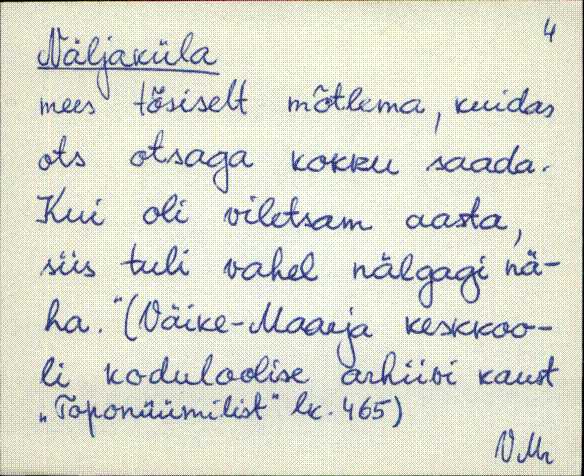 4
Näljaküla
mees tõsiselt mõtlema, kuidas
ots otsaga kokku saada.
Kui oli viletsam aasta,
siis tuli vahel nälgagi nä-
ha." (Väike-Maarja keskkoo-
li koduloolise arhiivi kaust
„Toponüümilist" lk. 465)
VMr